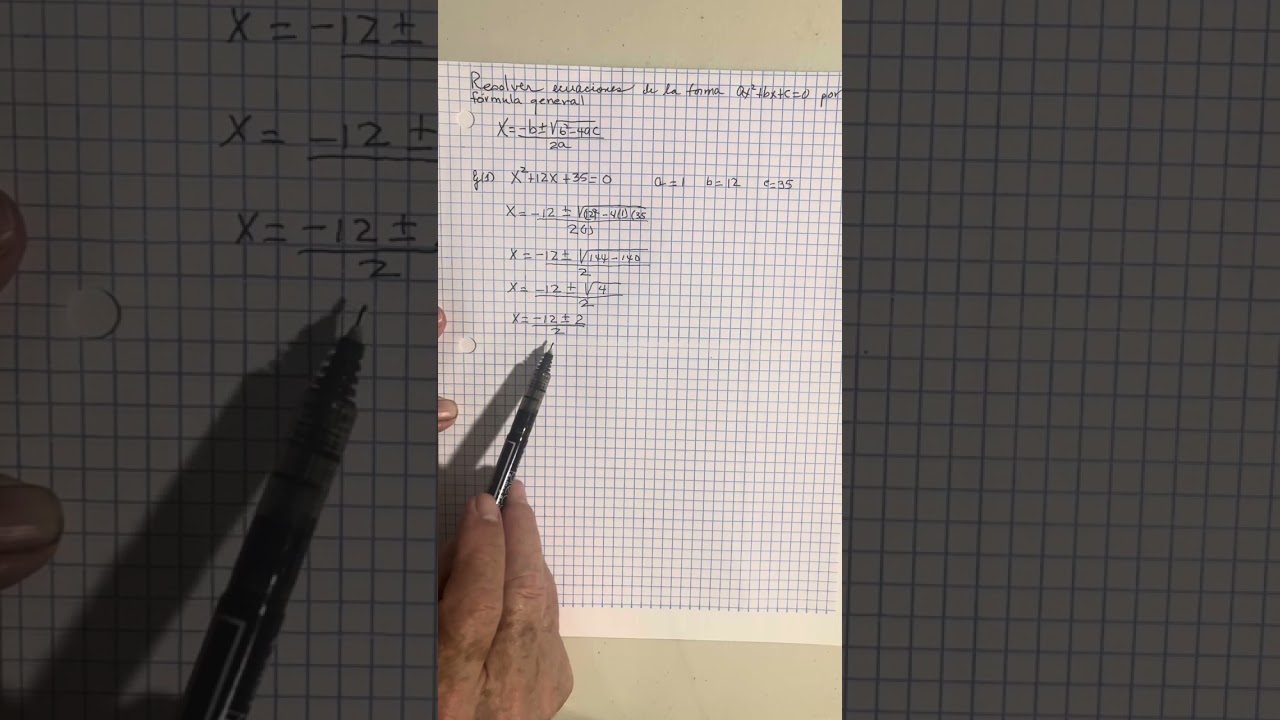 Resolver ecuaciones de la forma ax²+bx+c=0 por
fórmula general
X=-b±√b²-4ac
2a
X²+12X+35=0 a=1 b=12 c=35
X=-12±√(12)²-4(1)(35
2(1)
X=-12±√144-140
2
X=-12±√4
2
X=-12±2
2
X=-12±
X=-12±
X=-12±
2